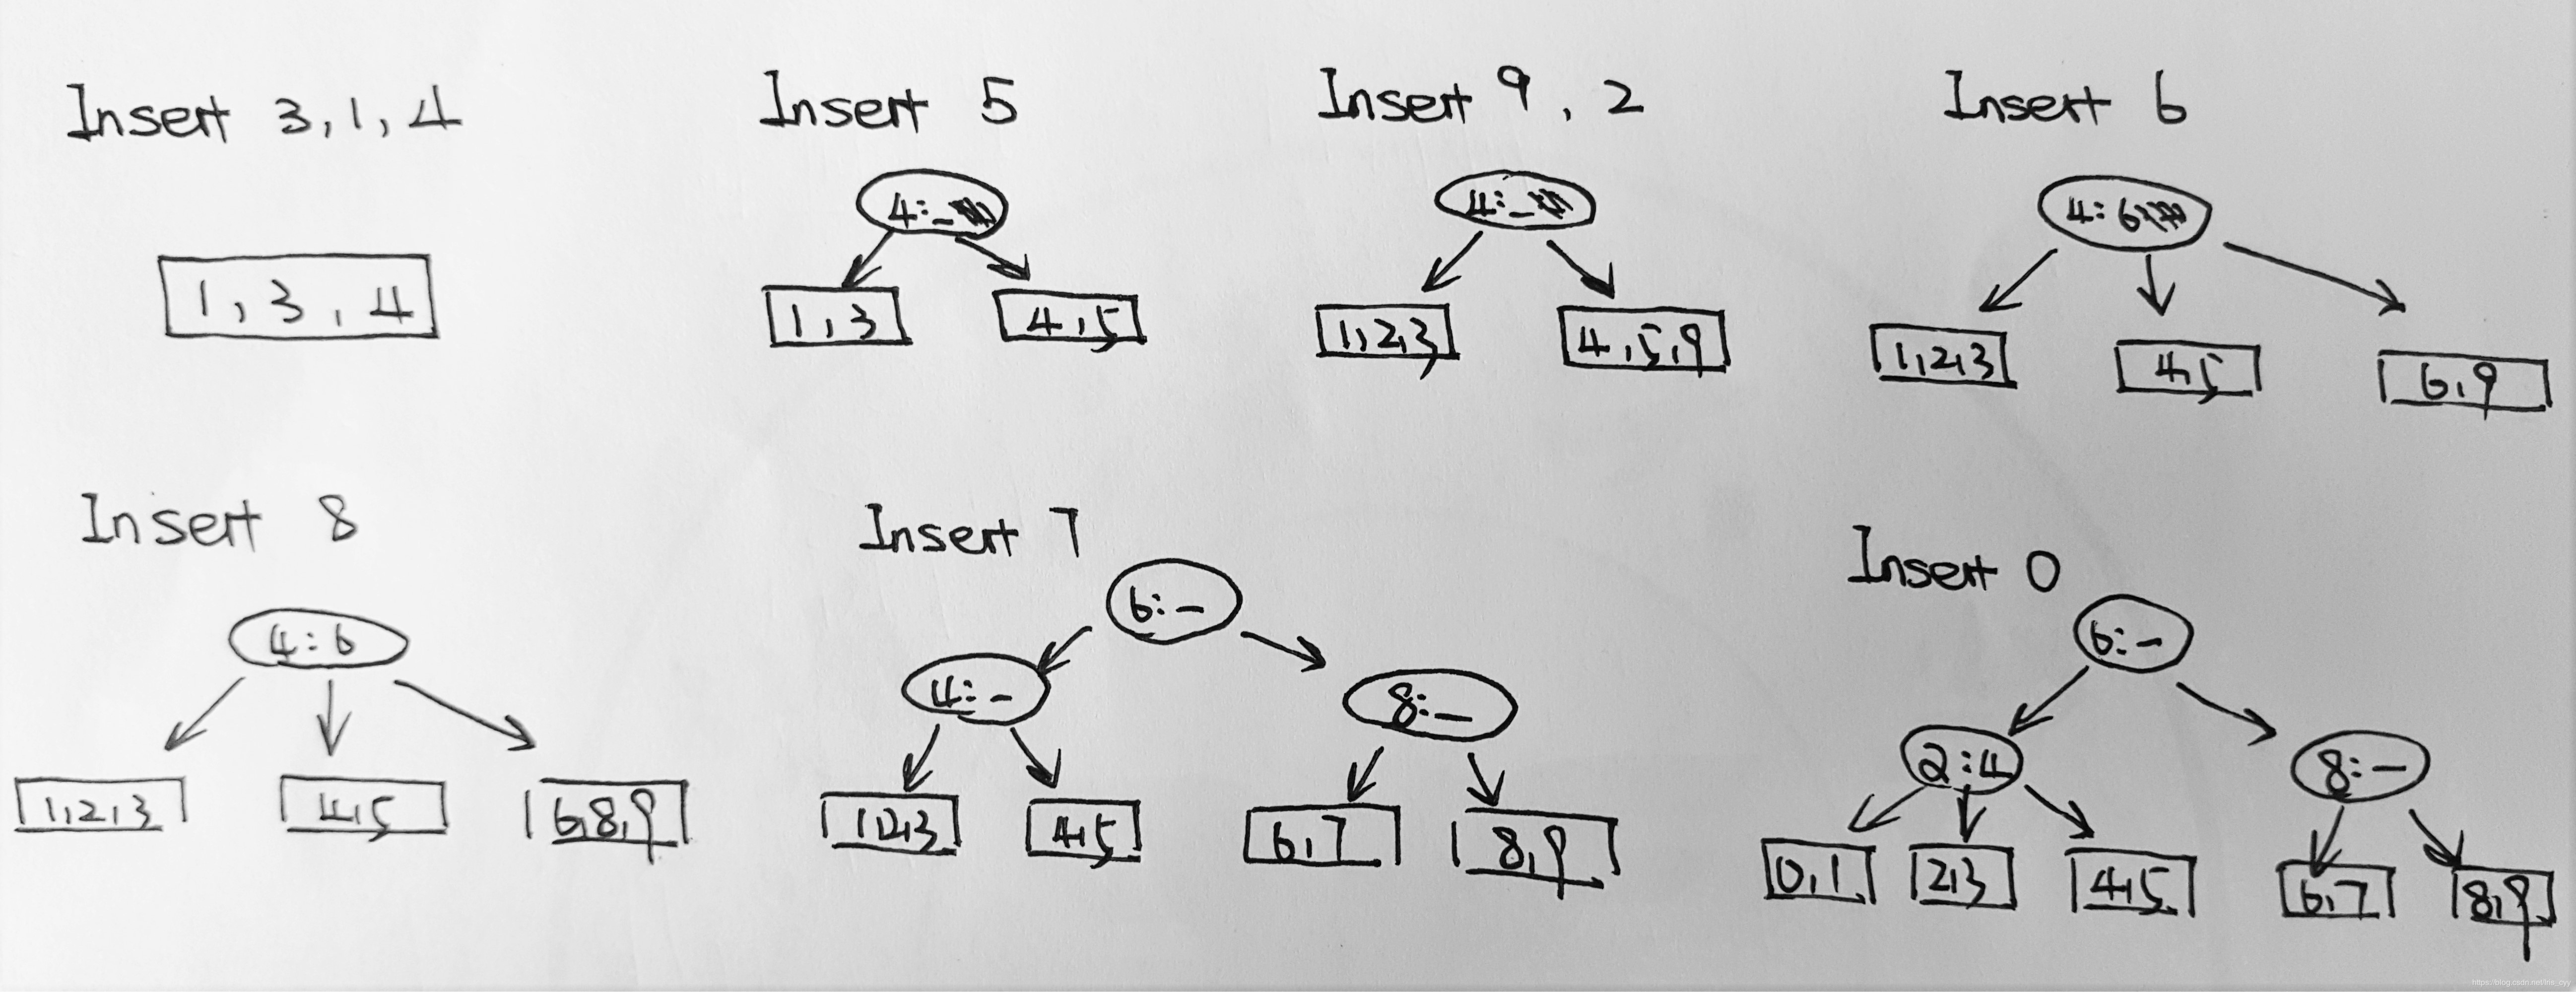 Insert 3, 1, 4
1, 3, 4
Insert 5
4:_
1,3
4,5
Insert 9, 2
4:_
1,2,3
4,5,9
Insert 6
4:6
1,2,3
4,5
6,9
Insert 8
4:6
1,2,3
4,5
6,8,9
Insert 7
6:-
4:-
8:-
1,2,3
4,5
6,7
8,9
Insert 0
6:-
2:4
8:-
0,1
2,3
4,5
6,7
8,9